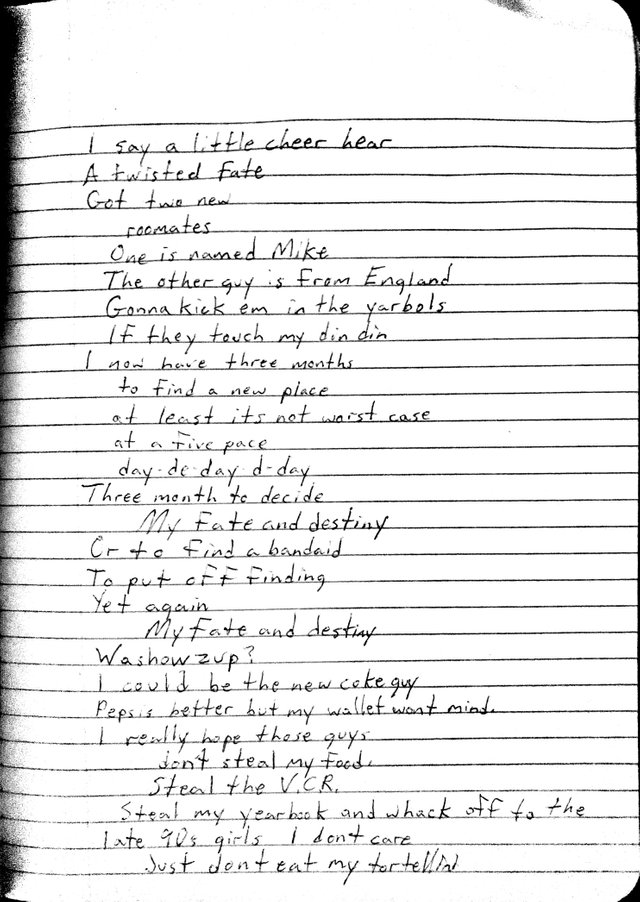 I say a little cheer hear
A twisted fate
Got two new
roomates
One is named Mike
The other guy is from England
Gonna kick em in the yarbols
If they touch my din din
I now have three months
to find a new place
at least its not worst case
at a five pace
day-de-day-d-day
Three month to decide
My fate and destiny
Or to find a bandaid
To put off finding
Yet again
My fate and destiny
Washowzup?
I could be the new coke guy
Pepsis better but my wallet wont mind.
I really hope those guys
don't steal my food.
Steal the V.C.R.
Steal my yearbook and whack off to the
late 90s girls I dont care
Just dont eat my tortellini